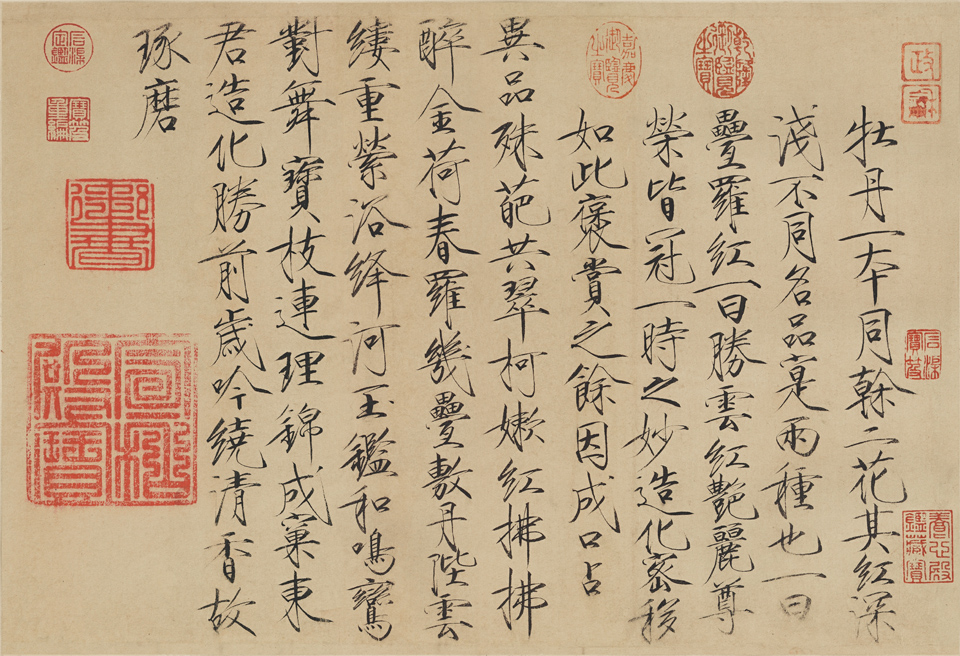 政龢
石渠
寶笈
養心殿
鑑藏寶
牡丹一本同榦二花其紅深
淺不同名品寔兩種也一曰
疊羅紅一曰勝雲紅艷麗尊
榮皆冠一時之妙造化密移
如此褒賞之餘因成口占
異品殊葩共翠柯嫩紅拂拂
醉金荷春羅幾疊敷丹陛雲
縷重縈浴絳河玉鑑和鳴鸞
對舞寶枝連理錦成窠東
君造化勝前歲吟繞清香故
琢磨
乾隆御覽之寶
嘉慶御覽之寶
石渠定鑑
寶笈重編
御書